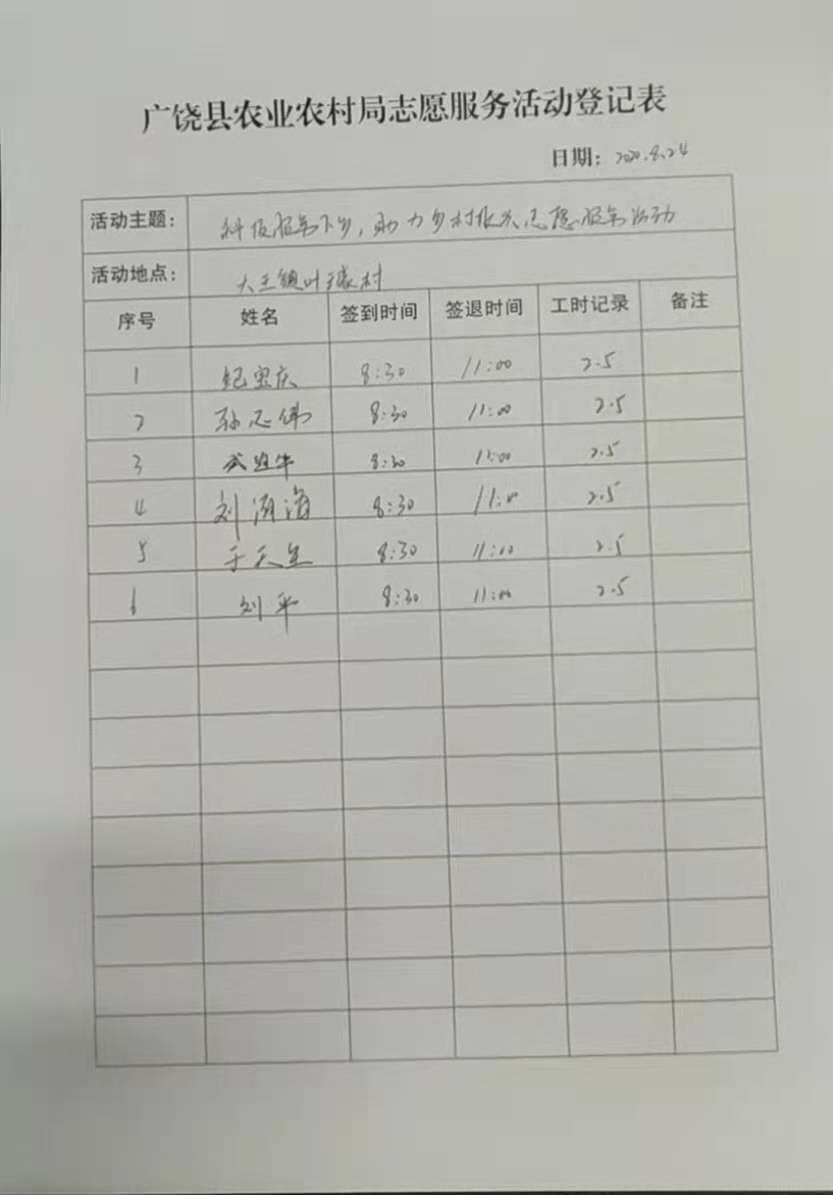 广饶县农业农村局志愿服务活动登记表
日期：2020.8.24
活动主题： 科技服务下乡，助力乡村振兴志愿服务活动
活动地点： 大王镇叶 村
序号 姓名 签到时间 签退时间 工时记录 备注
1 纪宝庆 8:30 11:00 2.5
2 孙志伟 8:30 11:00 2.5
3 8:30 11:00 2.5
4 刘 海 8:30 11:00 2.5
5 于天 8:30 11:00 2.5
6 刘平 8:30 11:00 2.5